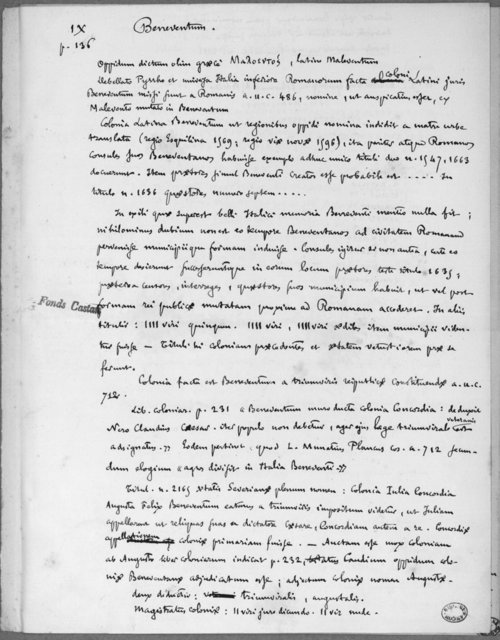 IX Beneventum.
p. 136
Oppidum dictum olim græci Μαλοεντός, latine Maleventum
Debellato Pyrrho et universa Italia inferiore Romanorum facta coloni Latini juris
Beneventum missi sunt a Romanis a.u.c. 486, nomine, ut auspicatius esset, ex
Malevento mutato in Beneventum
Colonia Latina Beneventum ut regionibus oppidi nomina indidit a matre urbe
translata (regio Esquilina 1569; regio viæ novæ 1596), ita penitus atque Romanos
Consules suos Beneventanos habuisse exemplo adhuc unico tituli duo n. 1547, 1663
docuerunt. Item prætores simul Beneventi creatos esse probabile est ..... In
titulo n. 1636 quæstores numero septem .....
In exili quæ superest belli Italici memoria Beneventi mentio nulla fit;
nihilominus dubium non est eo tempore Beneventanos ad civitatem Romanam
pervenisse municipiique formam induisse. Consules igitur si non antea, certe eo
tempore desierunt successeruntque in eorum locum prætores teste titulo 1635;
præterea censores, interreges, quæstores suos municipium habuit, ut vel post
formam rei publicæ mutatam proxima ad Romanam accederet. In aliis
titulis: IIII viri quinquen. IIII viri, IIII viri ædiles item municipii viden
tur fuisse — Tituli hi coloniam præcedentes et ætatem vetustiorem præ se
ferunt.
Colonia facta est Beneventum a triumviris reipublicæ constituendæ a.u.c.
712.
Lib. coloniar. p. 231 « Beneventum muro ducta colonia Concordia: deduxit
Nero Claudius Cæsar. iter populo non debetur, ager ejus lege triumvirali veteranis est
adsignatus. » Eodem pertinet quod L. Munatius Plancus cos. a. 712 secun-
dum elogium « agros divisit in Italia Beneventi »
Titul. n. 2165 ætatis Severianæ plenum nomen: Colonia Iulia Concordia
Augusta Felix Beneventum eatenus a triumviris impositum videtur, ut Juliam
appellarent ut reliquas suas a dictatore Cæsare, Concordiam autem a re. Concordiæ
coloniæ primariam fuisse. — Auctam esse mox coloniam
ab Augusto liber coloniarum indicat p. 232, Caudium oppidum colo-
niæ Beneventanæ adjudicatum esse; adjectum coloniæ nomen Augustæ.
deux deductio: triumviralis, augustalis.
Magistratus coloniæ: II viri juro dicundo. II vir nude.
Fonds Castan